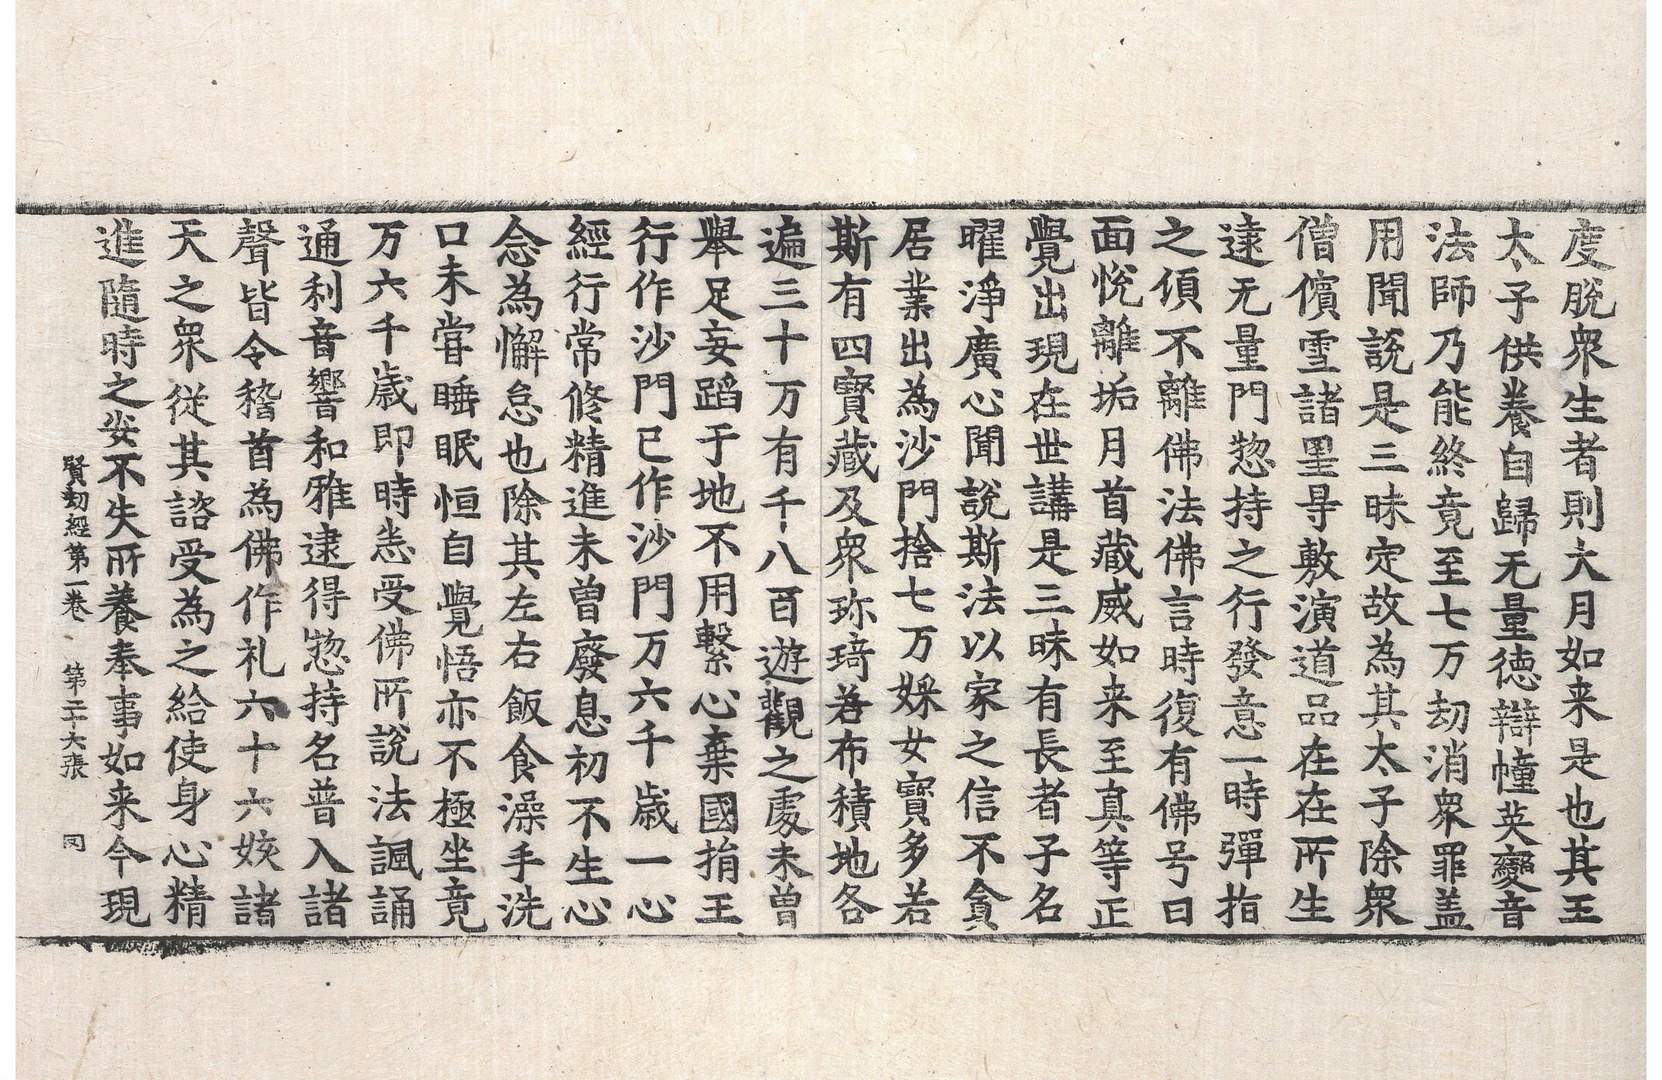 度脫衆生者則大月如来是也其王
太子供養自歸无量德辯幢英變音
法師乃能終竟至七万劫消衆罪盖
用聞說是三昧定故為其太子除衆
僧儐雪諸墨㝵敷演道品在在所生
逮无量門惣持之行發意一時彈指
之傾不離佛法佛言時復有佛号曰
面悅離垢月首藏威如来至真等正
覺出現在世講是三昧有長者子名
曜淨廣心聞說斯法以家之信不貪
居業出為沙門捨七万婇女寶多若
斯有四寶藏及衆珎琦若布積地各
遍三十万有千八百遊觀之處未曾
舉足妄蹈于地不用繫心棄國捐王
行作沙門已作沙門万六千歲一心
經行常修精進未曾廢息初不生心
念為懈怠也除其左右飯食澡手洗
口未甞睡眠恒自覺悟亦不極坐竟
万六千歲即時悉受佛所說法諷誦
通利音響和雅逮得惣持名普入諸
聲皆令稽首為佛作礼六十六姟諸
天之衆從其諮受為之給使身心精
進隨時之安不失所養奉事如来今現
賢劫經第一卷 第二十六張